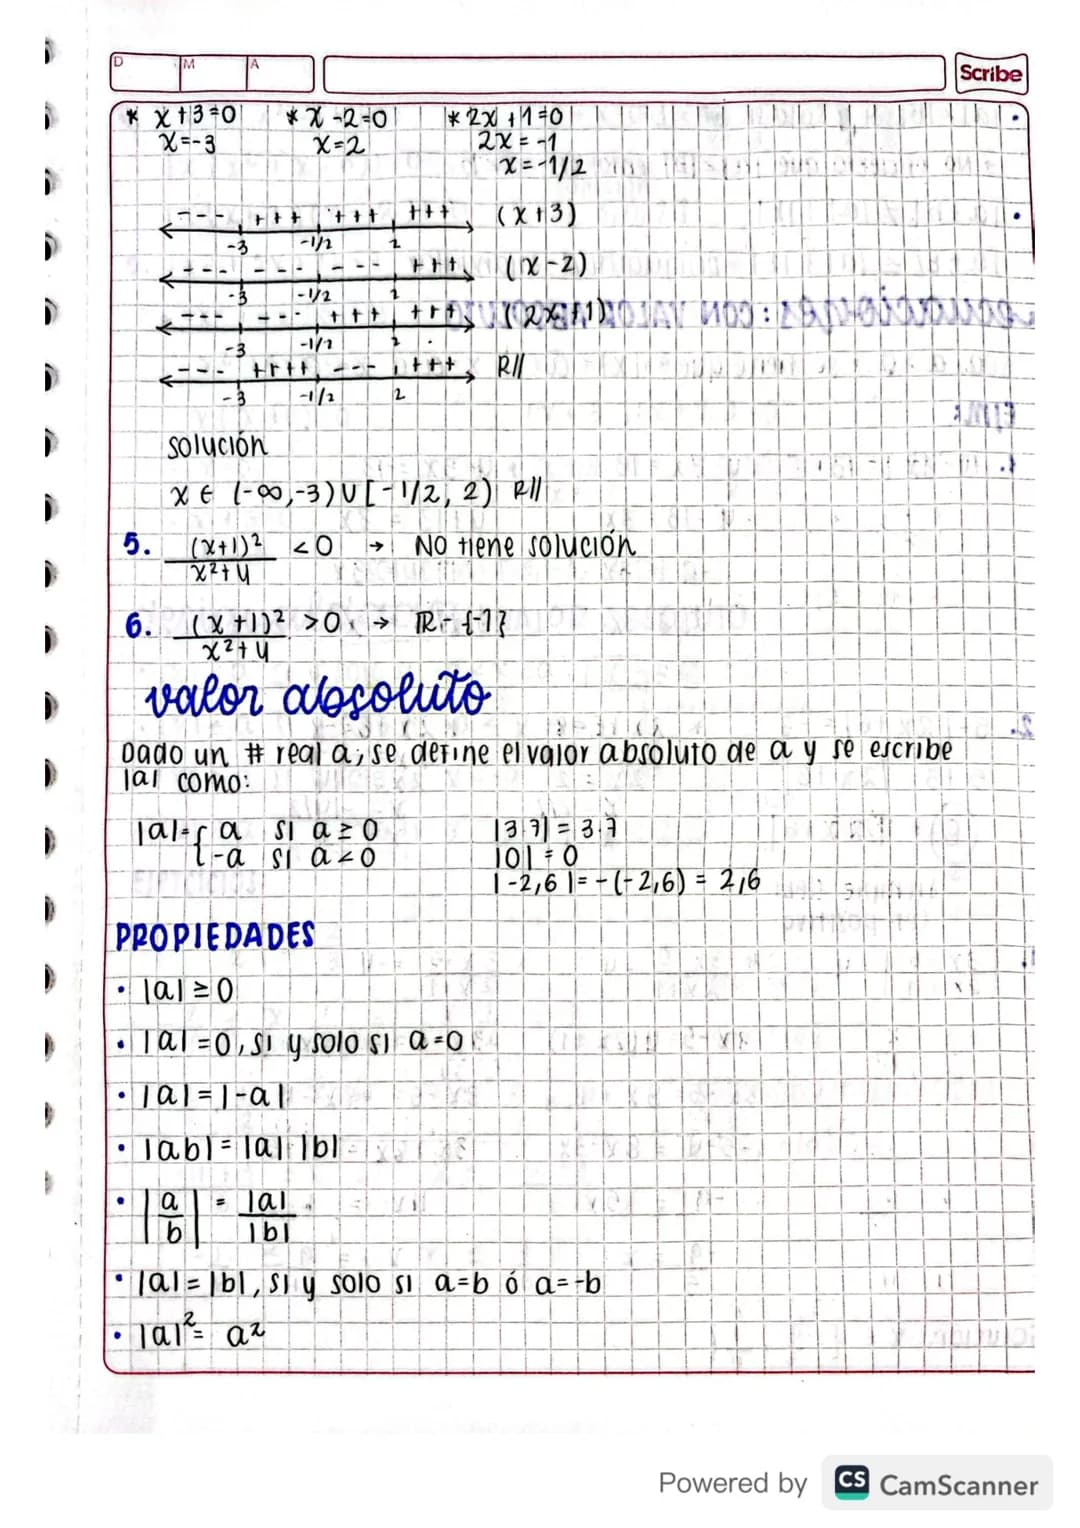 D M A
Scribe
* x+3=0 * x-2=0 * 2x+1=0
x=-3 x=2 2x=-1
x=-1/2
- - - + + + + + + + + + (x+3)
-3 -1/2 2
- - - - - - - - - + + + (x-2)
-3 -1/2 2
- - - - - - + + + + + + (2x+1)
-3 -1/2 2
- - - + + + + - - - + + + R//
-3 -1/2 2
solución
x ∈ (-∞,-3) ∪ [-1/2, 2) R//
5. (x+1)² / x²+4 <0 → No tiene solución
6. (x+1)² / x²+4 >0 → ℝ-{-1}
valor absoluto
Dado un # real a; se define el valor absoluto de a y se escribe
|a| como:
|a|={ a si a≥0 |3.7| = 3.7
-a si a<0 |0| = 0
|-2,6| = -(-2,6) = 2,6
PROPIEDADES
• |a| ≥ 0
• |a| = 0, si y solo si a=0
• |a| = |-a|
• |ab| = |a| |b|
• |a/b| = |a|/|b|
• |a| = |b|, si y solo si a=b ó a=-b
• |a|² = a²
Powered by CS CamScanner